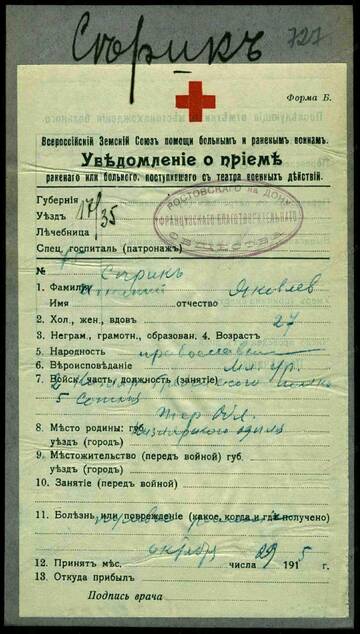 Сърикъ 727
Форма Б.
Всероссійскій Земскій Союзъ помощи больнымъ и раненымъ воинамъ.
Увѣдомленіе о пріемѣ
раненаго или больного, поступившаго съ театра военныхъ дѣйствій.
Губернія
Уѣздъ 17/35
Лѣчебница
Спец. госпиталь (патронажъ)
РОСТОВСКАГО на ДОНУ
ФРАНЦУЗСКАГО БЛАГОТВОРИТЕЛЬНАГО
ОБЩЕСТВА
№ Сърикъ
1. Фамилія Яковлев
Имя отчество
2. Хол., жен., вдовъ 27
3. Неграм., грамотн., образован. 4. Возрастъ
5. Народность православн
6. Вѣроисповѣданіе
7. Войск. часть, должность (занятіе) полка
5 Сотни
Тер Обл.
8. Место родины: губ. Кизлярскаго отдѣла
уѣздъ (городъ)
9. Мѣстожительство (передъ войной) губ.
уѣздъ (городъ)
10. Занятіе (передъ войной)
11. Болѣзнь, или поврежденіе (какое, когда и гдѣ получено)
октября 29 5
12. Принятъ мѣс. числа 191 г.
13. Откуда прибылъ
Подпись врача